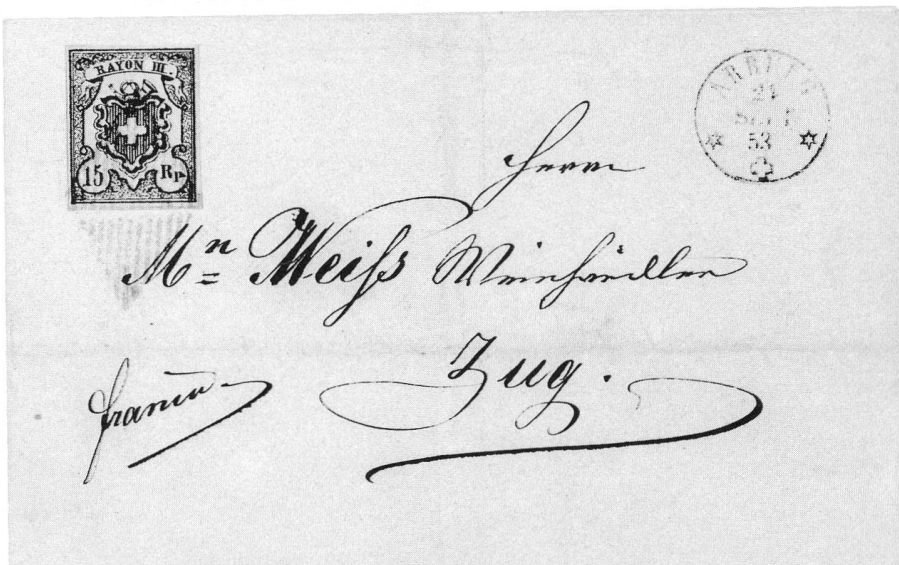 RAYON III.
15 Rp.
24
53
Herrn
Mn Weiſs Weinhändler
franco
Zug.